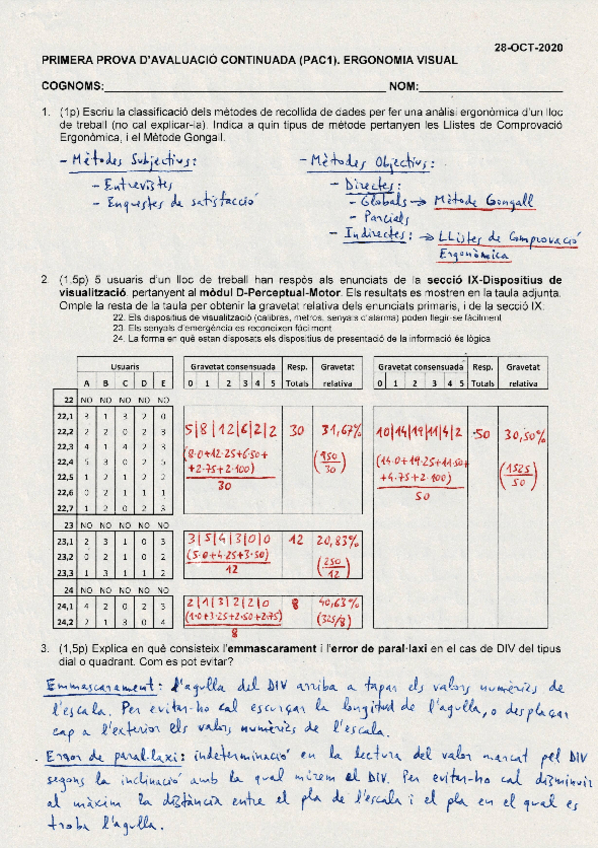 28-OCT-2020
PRIMERA PROVA D'AVALUACIÓ CONTINUADA (PAC1). ERGONOMIA VISUAL
COGNOMS: NOM:
1. (1p) Escriu la classificació dels mètodes de recollida de dades per fer una anàlisi ergonòmica d'un lloc
de treball (no cal explicar-la). Indica a quin tipus de mètode pertanyen les Llistes de Comprovació
Ergonòmica, i el Mètode Gongall.
- Mètodes Subjectius: - Mètodes Objectius:
- Entrevistes - Directes:
- Enquestes de satisfacció - Globals → Mètode Gongall
- Parcials
- Indirectes: → LListes de Comprovació
Ergonòmica
2. (1,5p) 5 usuaris d'un lloc de treball han respòs als enunciats de la secció IX-Dispositius de
visualització, pertanyent al mòdul D-Perceptual-Motor. Els resultats es mostren en la taula adjunta.
Omple la resta de la taula per obtenir la gravetat relativa dels enunciats primaris, i de la secció IX.
22. Els dispositius de visualització (calibres, metros, senyals d'alarma) poden llegir-se fàcilment
23. Els senyals d'emergència es reconeixen fàcilment
24. La forma en què estan disposats els dispositius de presentació de la informació és lògica
Usuaris Gravetat consensuada Resp. Gravetat Gravetat consensuada Resp. Gravetat
A B C D E 0 1 2 3 4 5 Totals relativa 0 1 2 3 4 5 Totals relativa
22 NO NO NO NO NO
22,1 3 1 3 2 0
22,2 2 2 0 2 3 5|8|12|6|2|2 30 31,67% 10|14|19|11|4|2 50 30,50%
22,3 4 1 4 2 3 (8·0+12·25+6·50+ (950/30) (14·0+19·25+11·50+ (1525/50)
22,4 5 3 0 2 5 +2·75+2·100) +4·75+2·100)
22,5 1 2 1 2 2 30 50
22,6 0 2 1 1 1
22,7 1 2 0 2 3
23 NO NO NO NO NO
23,1 2 3 1 0 3 3|5|4|3|0|0 12 20,83%
23,2 0 2 1 0 2 (5·0+4·25+3·50) (250/12)
23,3 1 3 1 1 2 12
24 NO NO NO NO NO
24,1 4 2 0 2 3 2|1|3|2|2|0 8 40,63%
24,2 2 1 3 0 4 (1·0+3·25+2·50+2·75) (325/8)
8
3. (1,5p) Explica en què consisteix l'emmascarament i l'error de paral·laxi en el cas de DIV del tipus
dial o quadrant. Com es pot evitar?
Emmascarament: l'agulla del DIV arriba a tapar els valors numèrics de
l'escala. Per evitar-ho cal escurçar la longitud de l'agulla, o desplaçar
cap a l'exterior els valors numèrics de l'escala.
Error de paral·laxi: indeterminació en la lectura del valor marcat pel DIV
segons la inclinació amb la qual mirem el DIV. Per evitar-ho cal disminuir
al màxim la distància entre el pla de l'escala i el pla en el qual es
troba l'agulla.